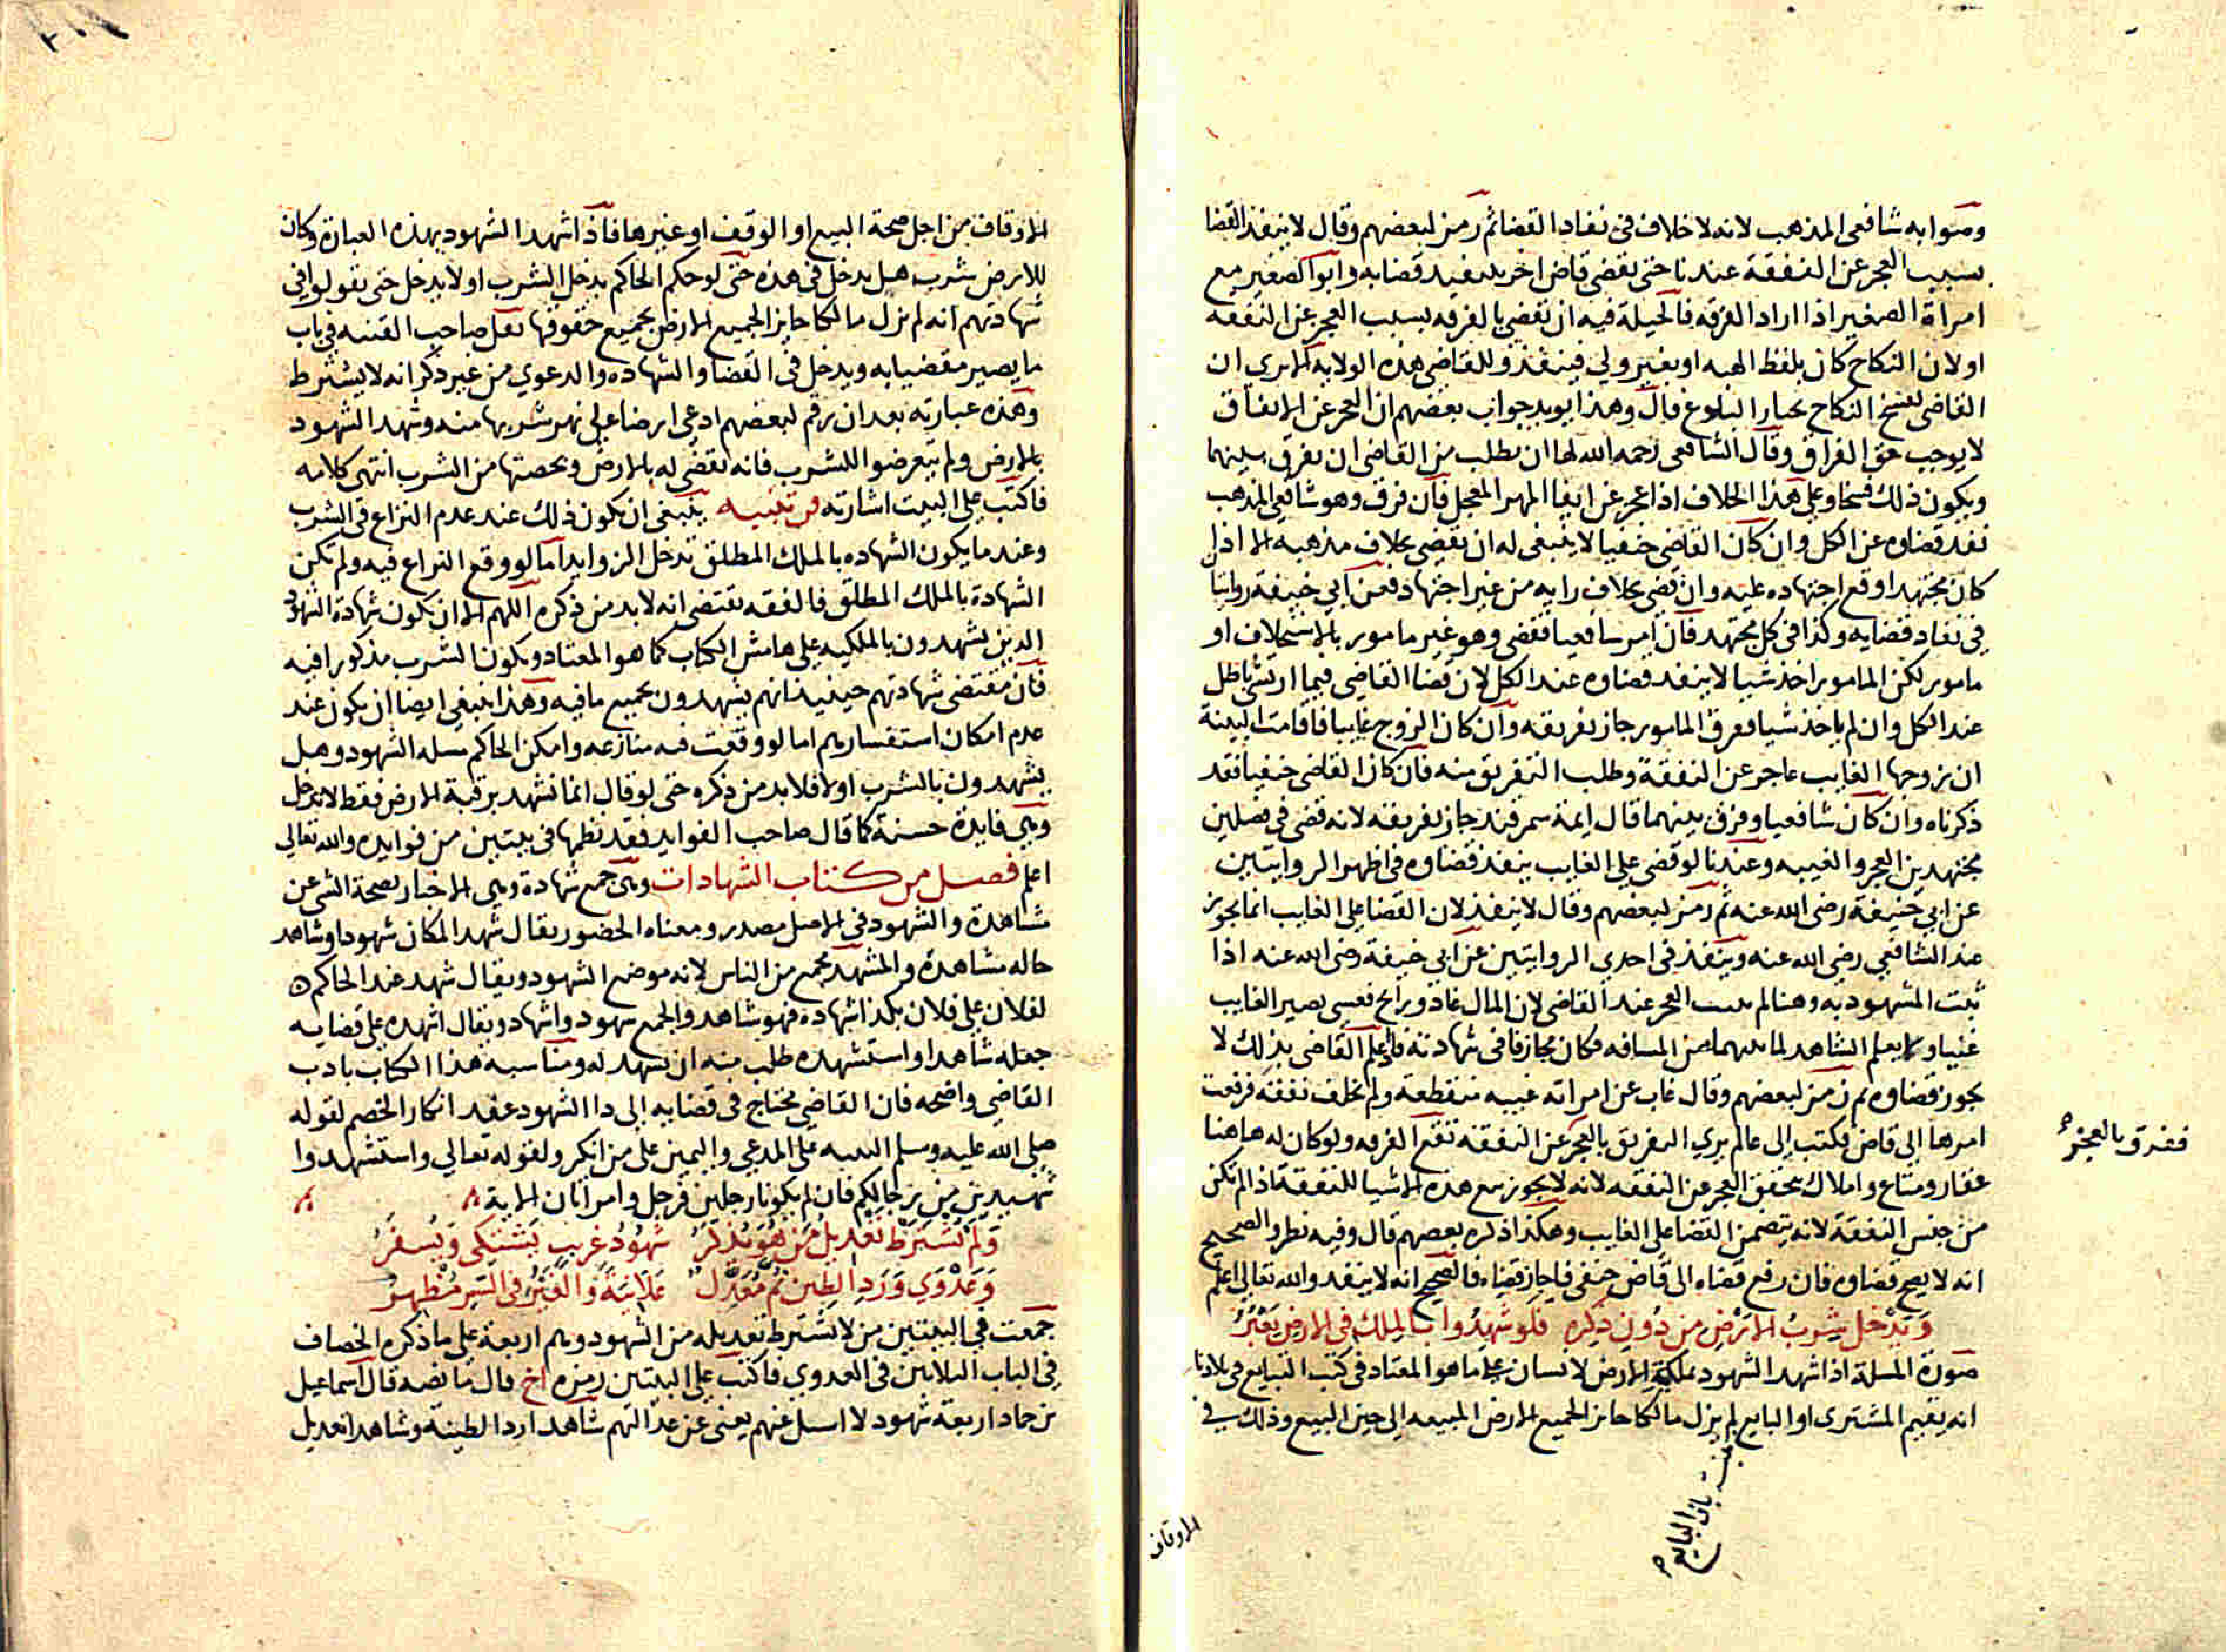 وصوابه شافعي المذهب لانه لا خلاف في نفاد القضا ثم رمز لبعضهم وقال لا ينفذ القضا
بسبب العجز عن النفقة عندنا حتى يقضي قاض اخر بتنفيد قضايه وابوا الصغير مع
امراة الصغير اذا اراد الفرقه فالحيلة فيه ان يقضي بالفرقه بسبب العجز عن النفقه
او لان النكاح كان بلفظ الهبه او بغير ولي فينفذ وللقاضي هذه الولايه الا يري ان
القاضي يفسخ النكاح بخيار البلوغ قال وهذا يويد جواب بعضهم ان العجز عن الانفاق
لا يوجب حق الفراق وقال الشافعي رحمه الله لها ان يطلب من القاضي ان يفرق بينهما
ويكون ذلك فسخا وعلي هذا الخلاف اذا عجز عن ايفا المهر المعجل فان فرق وهو شافعي المذهب
نفد قضاوه عن الكل وان كان القاضي حنفيا لا ينبغي له ان يقضي بخلاف مذهبه الا اذا
كان مجتهدا وقع اجتهاده عليه وان قضي بخلاف رايه من غير اجتهاد فعن ابي حنيفة روايتا
في نفاد قضايه وكذا في كل مجتهد فان امر شافعيا فقضي وهو غير مامور بالاستخلاف او
مامور لكن المامور اخذ شيا لا ينفد قضاوه عند الكل لان قضا القاضي فيما ارتشي باطل
عند الكل وان لم ياخذ شيا ففرق المامور جاز تفريقه وان كان الزوج غايبا فاقامت البينة
ان زوجها الغايب عاجز عن النفقة وطلب التفريق منه فان كان القاضي حنفيا فقد
ذكرناه وان كان شافعيا وفرق بينهما قال ايمة سمرقند جاز تفريقه لانه قضي في فصلين
مجتهد بن العجز والغيبه وعندنا لو قضي علي الغايب ينفذ قضاوه في اظهر الروايتين
عن ابي حنيفة رضي الله عنه ثم رمز لبعضهم وقال لا ينفذ لان القضا علي الغايب انما يجوز
عند الشافعي رضي الله عنه وينفذ في احدي الروايتين عن ابي حنيفة رضي الله عنه اذا
ثبت المشهود به وهنا لم يثبت العجز عند القاضي لان المال غاد ورايح فعسي يصير الغايب
غنيا ولا يعلم الشاهد لما بينهما من المسافه فكان مجازفا في شهادته فاذا علم القاضي بذلك لا
يجوز قضاوه ثم رمز لبعضهم وقال غاب عن امراته غيبه منقطعة ولم يخلف نفقة فرفعت
امرها الي قاض فكتب الي عالم يري التفريق بالعجز عن النفقة تقع الفرقه ولو كان له هاهنا
ففرق بالعجز
عقار ومتاع واملاك يتحقق العجز عن النفقه لانه لا يجوز بيع هذه الاشيا للنفقة اذا لم تكن
من جنس النفقة لانه يتضمن القضا علي الغايب وهكذا ذكره بعضهم قال وفيه نظر والصحيح
انه لا يصح قضاوه فان رفع قضاه الى قاض حنفي فاجاز قضاه فالصحيح انه لا ينفد والله تعالي اعلم
وَيدْخُل شِربُ الارْضِ من دُون ذِكره فلو شهِدُوا بالملك في الارض يَعْبُرُ
صورة المسلة اذا شهد الشهود بملكية الارض لانسان علي ما هو المعتاد في كتب التبايع في بلادنا
انه يقيم المشتري او البايع لم يزل مالكا حايز الجميع الارض المبيعه الي حين البيع وذلك في
بينة بان البايع
الاوقاف
الاوقاف من اجل صحة البيع او الوقف او غيرها فاذا شهد الشهود بهذه العبارة وكان
للارض شرب هل يدخل في هذه حتي لو حكم الحاكم يدخل الشرب او لا يدخل حتى يقولوا في
شهادتهم انه لم يزل مالكا حايز الجميع الارض بجميع حقوقها نقل صاحب القنيه في باب
ما يصير مقضيا به ويدخل في القضا والشهاده والدعوي من غير ذكر انه لا يشترط
وهذه عبارته بعد ان رقم لبعضهم ادعي ارضا علي نهر شربها منه وشهد الشهود
بالارض ولم يتعرضوا للشرب فانه يقضي له بالارض وبحصتها من الشرب انتهي كلامه
فاكتب علي البيت اشارته تنبيه ينبغي ان يكون ذلك عند عدم النزاع في الشرب
وعند ما يكون الشهاده بالملك المطلق تدخل الزوايد اما لو وقع النزاع فيه ولم تكن
الشهادة بالملك المطلق فالفقه يقتضي انه لا بد من ذكره اللهم الا ان يكون شهادة الشهود
الدين يشهدون بالملكيه علي هامش الكتاب كما هو المعتاد ويكون الشرب مذكورا فيه
فان مقتضي شهادتهم حينيذ انهم يشهدون بجميع ما فيه وهذا ينبغي ايضا ان يكون عند
عدم امكان استفسارهم اما لو وقعت فيه منازعه وامكن الحاكم مسله الشهود وهل
يشهدون بالشرب اولا فلا بد من ذكره حتى لو قال انما نشهد برقبة الارض فقط لا يدخل
وهي فايدة حسنة كما قال صاحب الفوايد فقد نظمها في بيتين من فوايده والله تعالي
اعلم فصل من كتاب الشهادات وهي جمع شهادة وهي الاخبار بصحة الشي عن
مشاهدة والشهود في الاصل مصدر ومعناه الحضور يقال شهد المكان شهودا وشاهد
حاله مشاهدة والمشهد مجمع من الناس لانه موضع الشهود ويقال شهد عند الحاكم
لفلان علي فلان بكذا شهادة فهو شاهد والجمع شهود واشهاد ويقال اشهده علي قضايه
جعله شاهدا واستشهده طلب منه ان يشهد له ومناسبه هذا الكتاب بادب
القاضي واضحه فان القاضي محتاج في قضايه الي دا الشهود عند انكار الخصم لقوله
صلي الله عليه وسلم البينه علي المدعي واليمين علي من انكر ولقوله تعالي واستشهدوا
شهيدين من رجالكم فان لم يكونا رجلين فرجل وامراتان الاية
وَلم تُشترط تعْديلُ مَن هُوَ يُذكَرُ شهُودُ غريبٍ يَشتكى وَيُسفَرُ
وَعَدْوَي وَرَدِ الطِين ثم مُعَدِّل عَلانيَةً وَالغَيْرُ في السِّر مُظهِرُ
جمعت في البيتين من لا يشترط تعديله من الشهود وهم اربعة علي ما ذكره الخصاف
في الباب الثلاثين في العدوي فاكتب علي البيتين رمزه اخ قال ما نصه قال اسماعيل
بن حماد اربعة شهود لا اسل عنهم يعني عن عدالتهم شاهدا رد الطينة وشاهدا تعديل